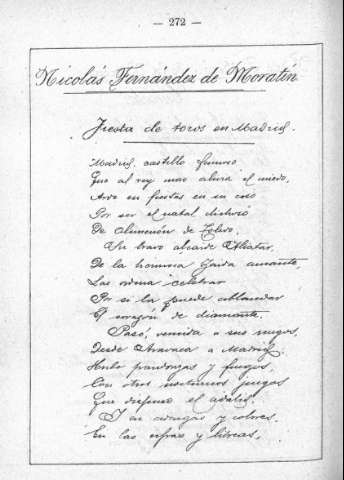 — 272 —
Nicolás Fernández de Moratín
Fiesta de toros en Madrid.
Madrid, castillo famoso
Que al rey moro alivia el miedo,
Arde en fiestas en su coso
Por ser el natal dichoso
De Alimenón de Toledo.
Su bravo alcaide Aliatar,
De la hermosa Zaida amante,
Las ordena celebrar
Por si la puede ablandar
El corazón de diamante.
Pasó, vencida a sus ruegos,
Desde Aravaca a Madrid.
Hubo pandorgas y fuegos,
Con otros nocturnos juegos
Que dispuso el adalid.
Y en adargas y colores,
En las cifras y libreas,